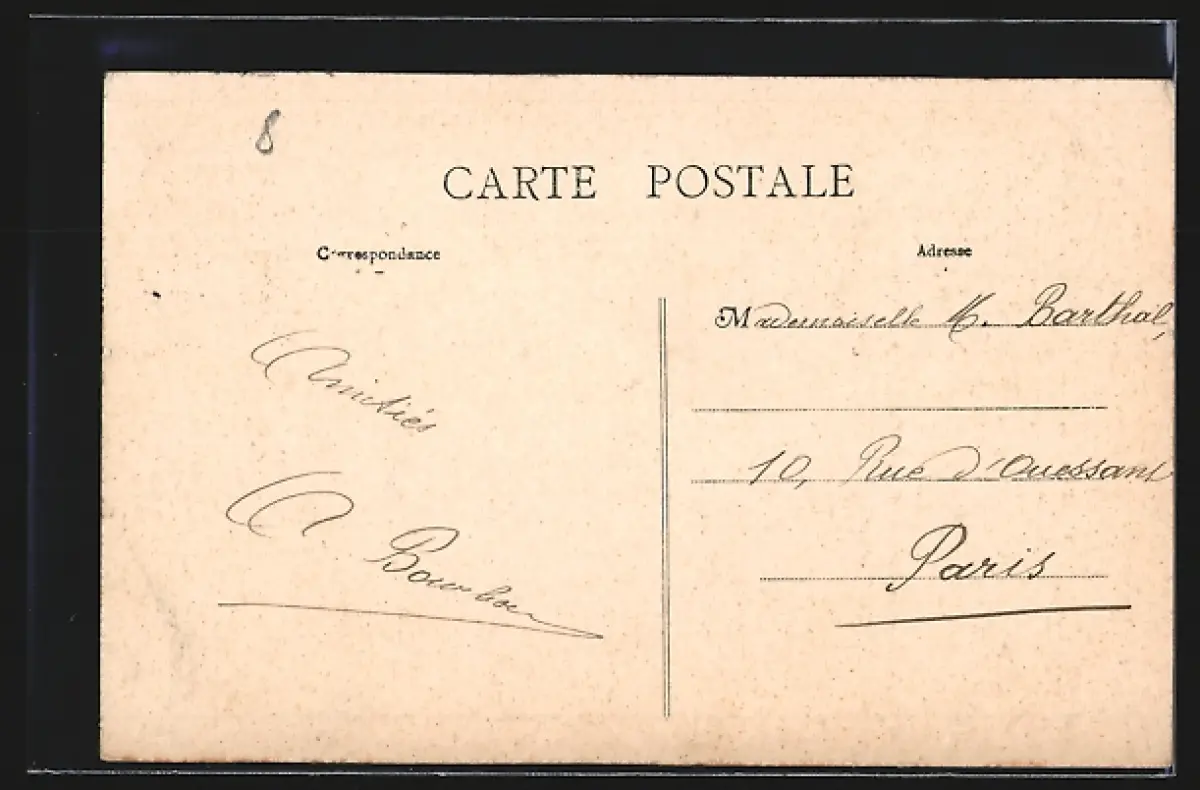 8
CARTE POSTALE
Correspondance
Amitiés
A. Bourbon
Adresse
Mademoiselle M. Barthal,
10, Rue d'Ouessant
Paris